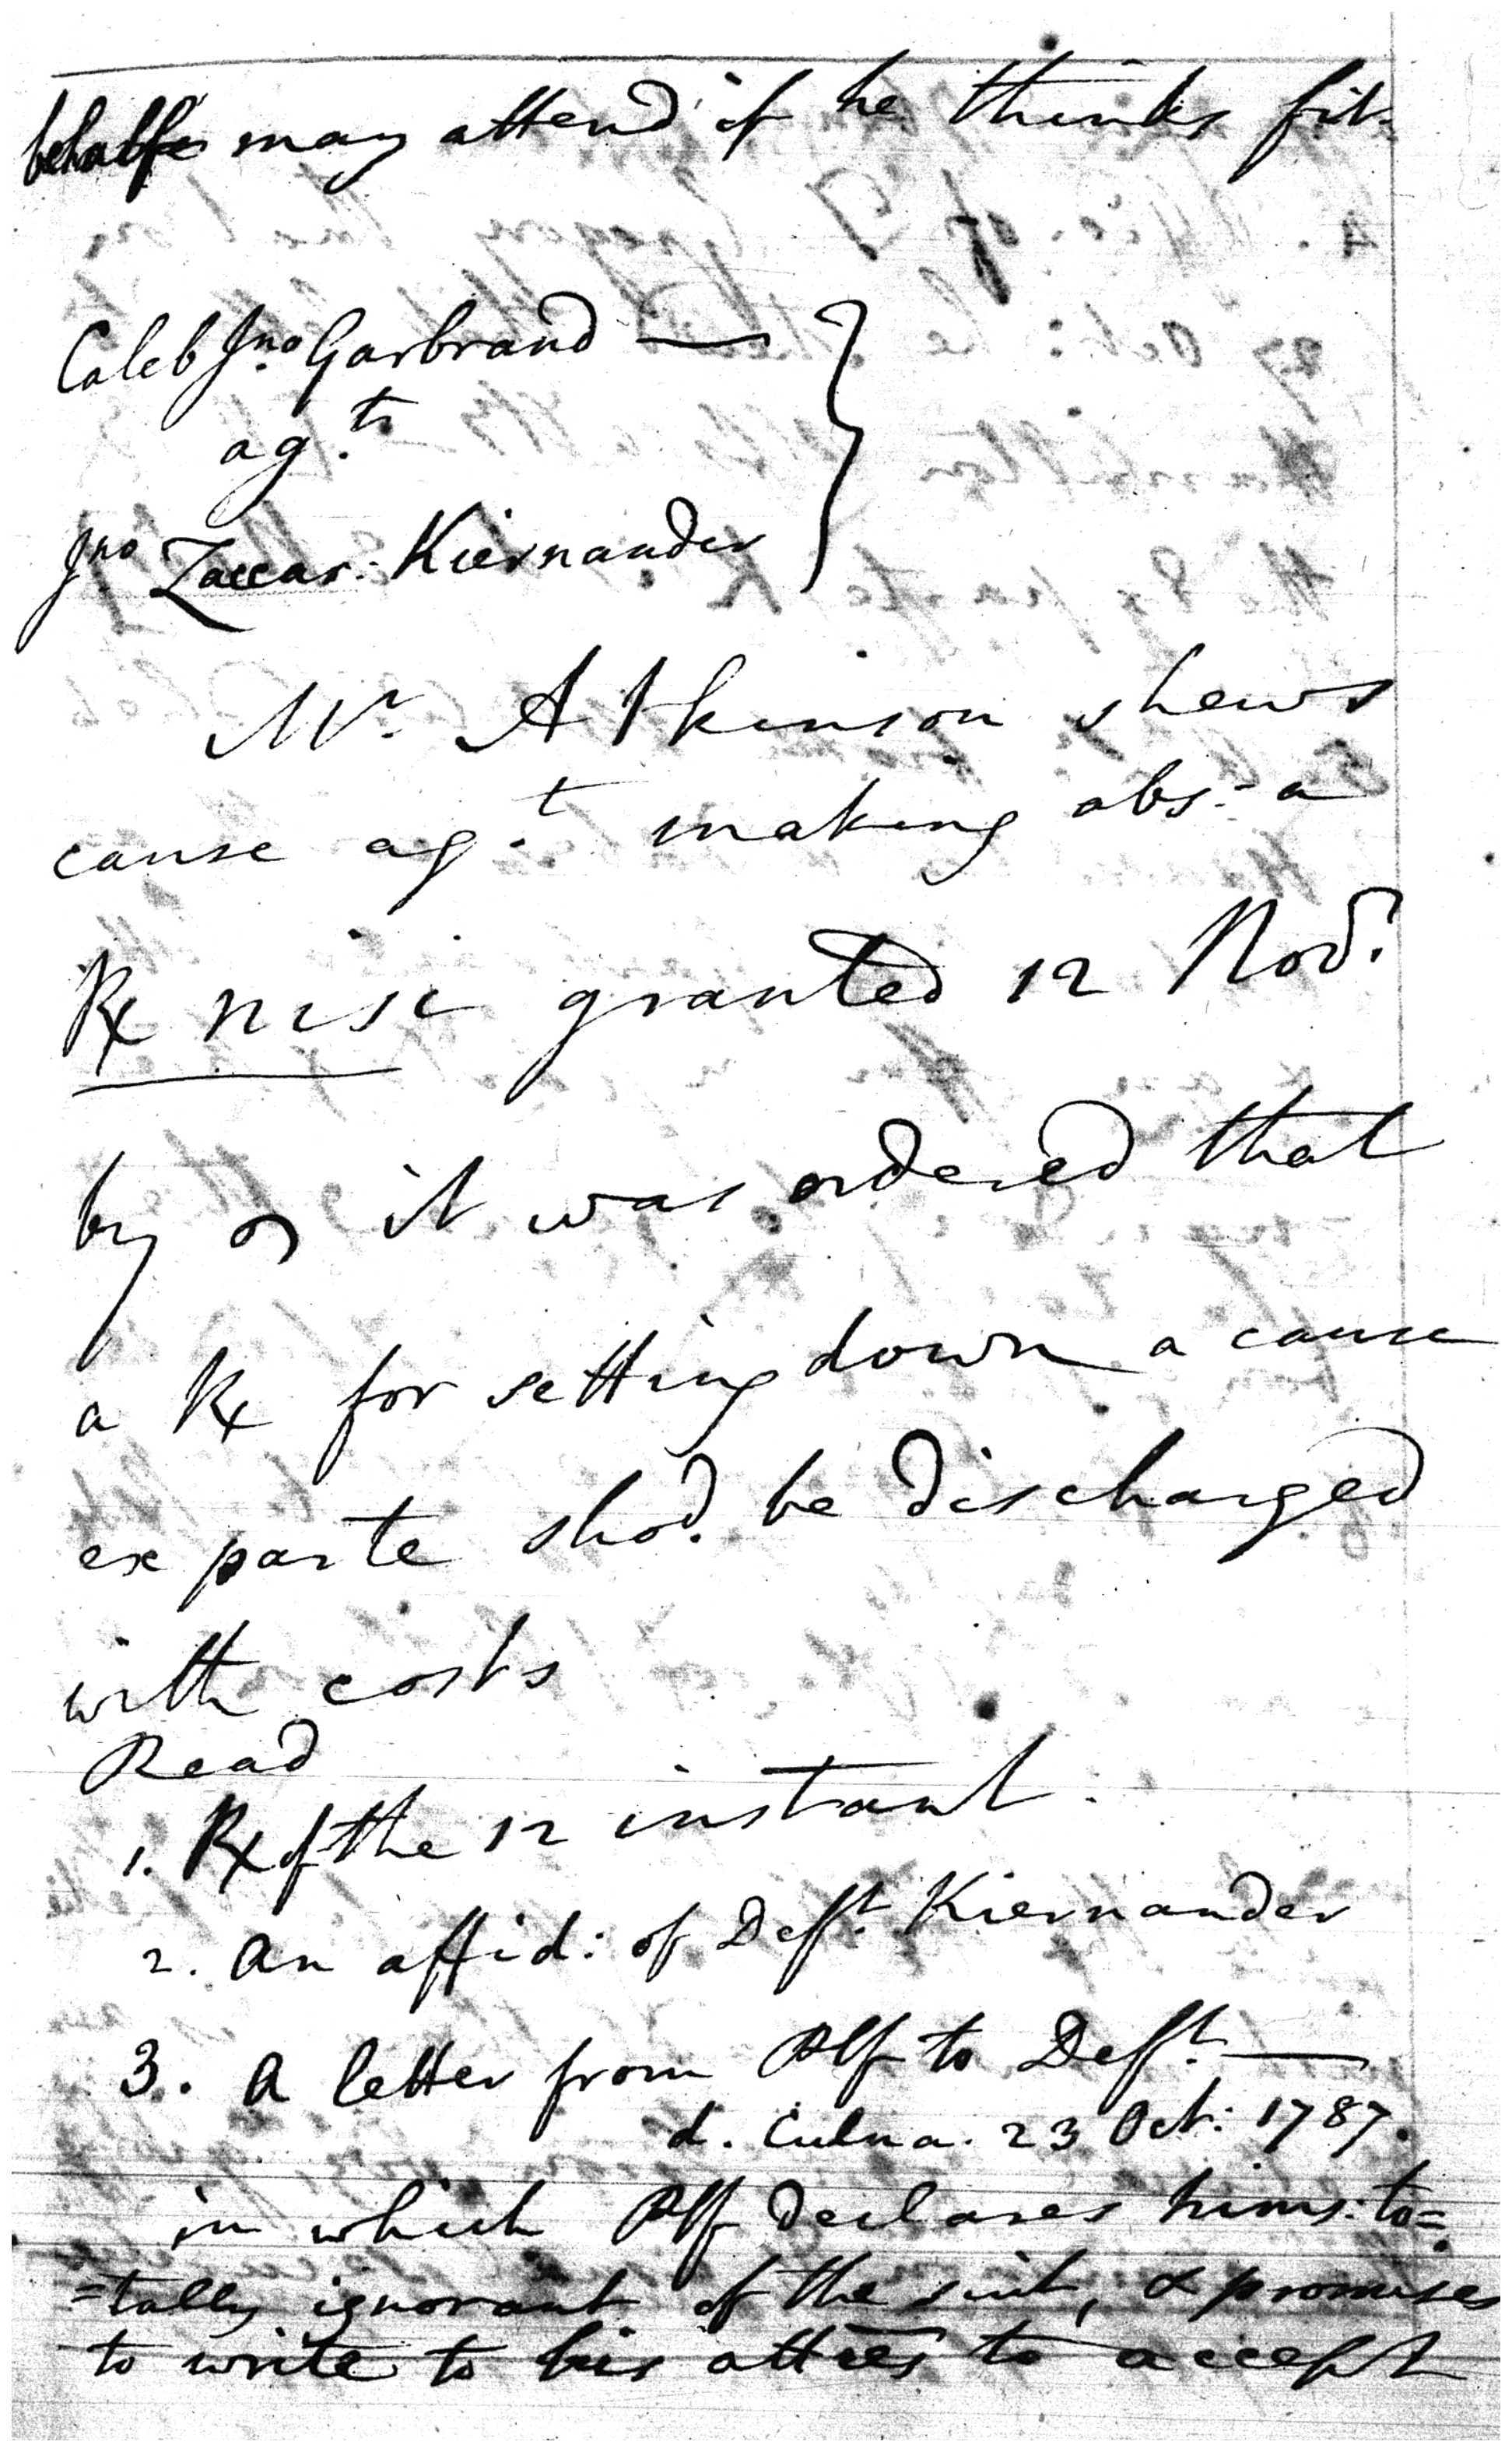 behalfe may attend if he thinks fit.
Caleb Jno. Garbrand —
ag.t
Jno Zaccar: Kiernander
Mr. Atkinson shews
cause ag.t making abs: a
Rx nisi granted 12 Nov.
by it was ordered that
a Rx for setting down a cause
ex parte shod. be discharged
with costs
Read
1. Rx of the 12 instant.
2. An affid: of Deft. Kiernander
3. A letter from Plf to Deft. —
d. Culna. 23 Oct: 1787.
in which Plf declares hims: to=
=tally ignorant of the suit, & promises
to write to his atties to accept